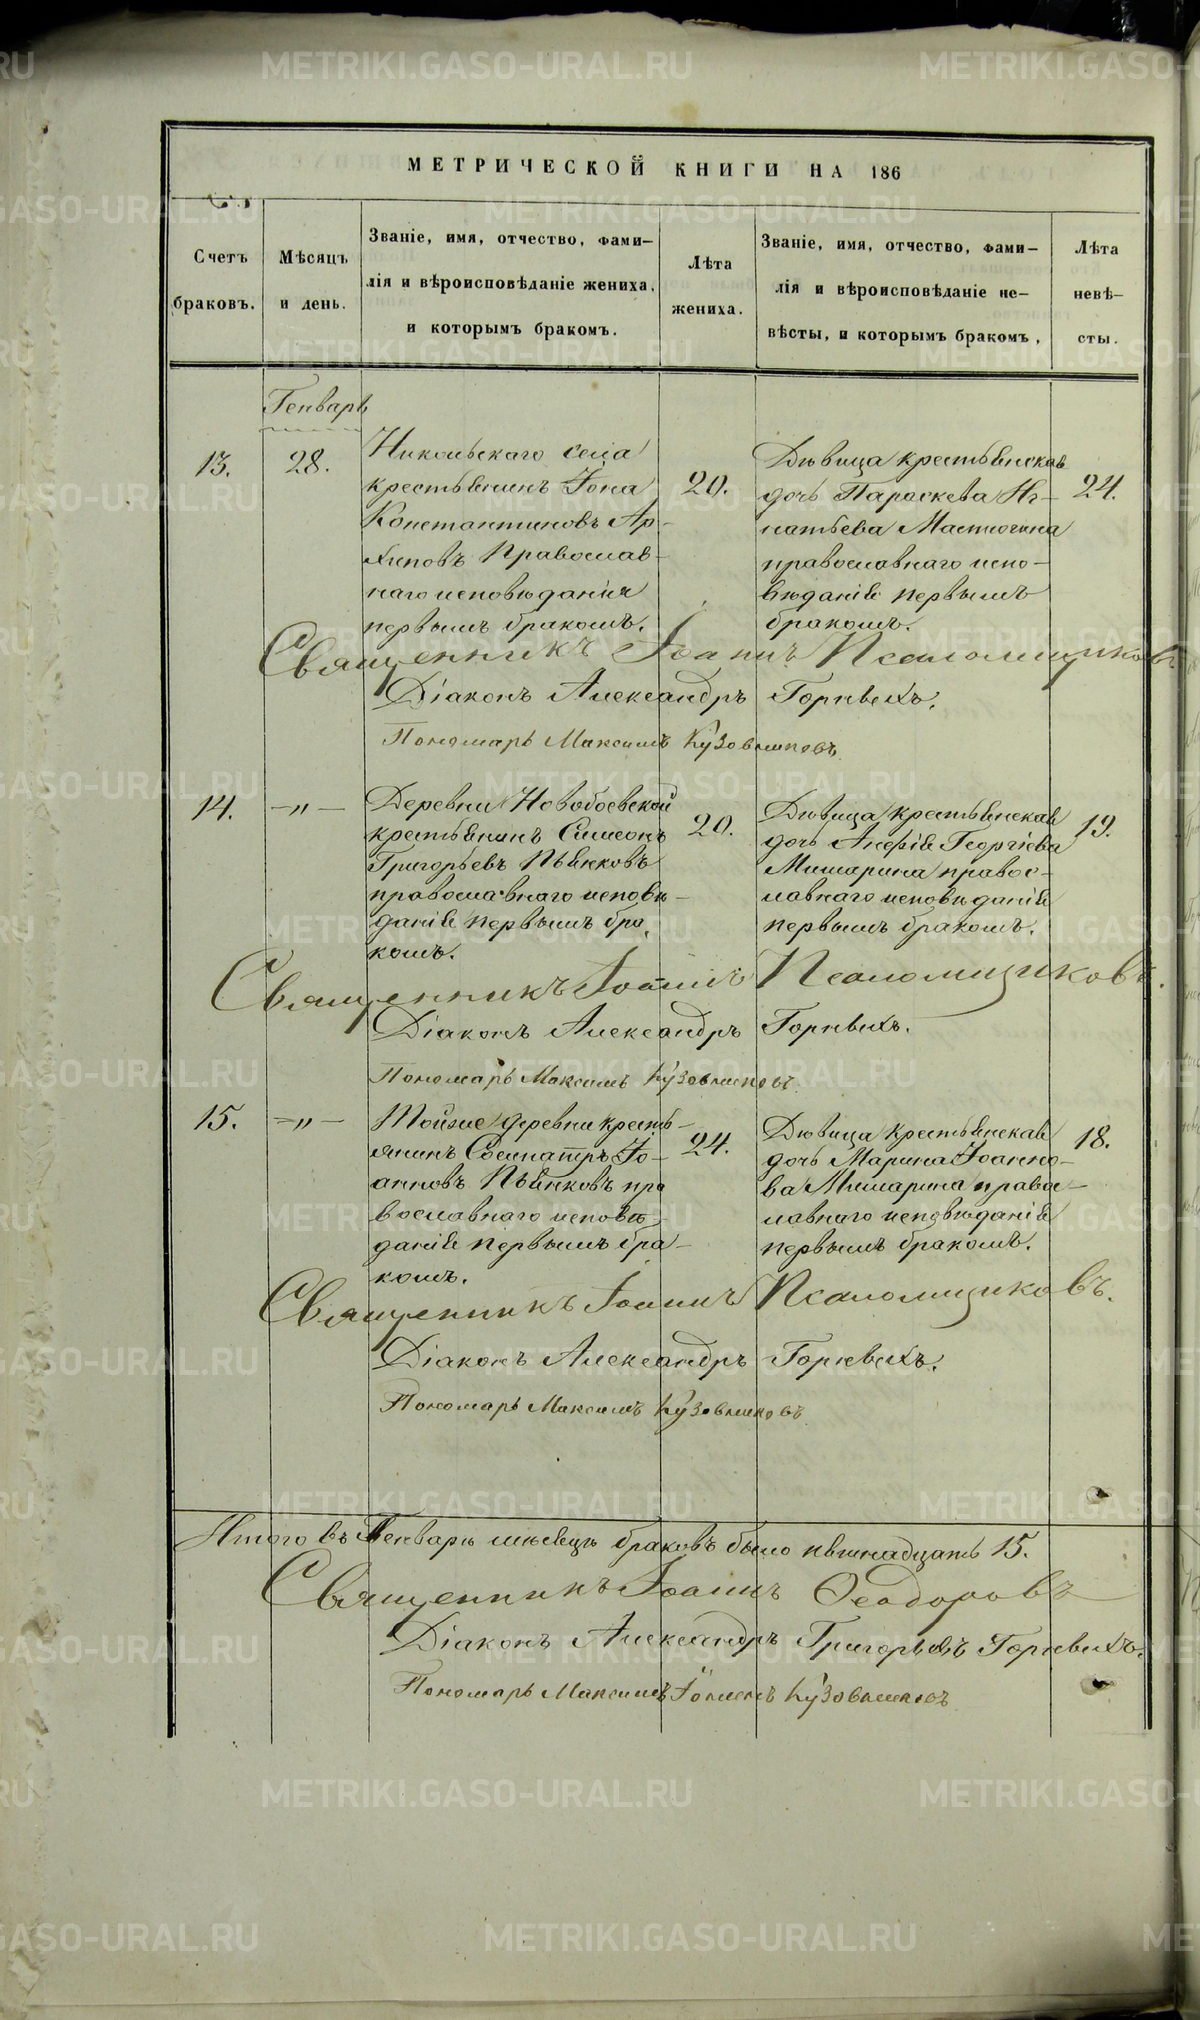 METRIKI.GASO-URAL.RU
МЕТРИЧЕСКОЙ КНИГИ НА 186
Счетъ браковъ.
Мѣсяцъ и день.
Званіе, имя, отчество, фами-
лія и вѣроисповѣданіе жениха,
и которымъ бракомъ.
Лѣта жениха.
Званіе, имя, отчество, фами-
лія и вѣроисповѣданіе не-
вѣсты, и которымъ бракомъ,
Лѣта невѣ-
сты.
Генварь
13.
28.
Никольскаго села
крестьянинъ Іона
Константиновъ Ар-
хиповъ Православ-
наго исповѣданія
первымъ бракомъ.
20.
Дѣвица крестьянская
дочь Параскева Иг-
натьева
православнаго испо-
вѣданія первымъ
бракомъ.
24.
Священникъ Іоаннъ Псаломщиковъ.
Діаконъ Александръ Горныхъ.
Пономарь Максимъ Кузовниковъ
14.
-„-
Деревни Новобоевской
крестьянинъ Симеонъ
Григорьевъ Пьянковъ
православнаго исповѣ-
данія первымъ бра-
комъ.
20.
Дѣвица крестьянская
дочь Георгіева
Мишарина правос-
лавнаго исповѣданія
первымъ бракомъ.
19.
Священникъ Іоаннъ Псаломщиковъ.
Діаконъ Александръ Горныхъ.
Пономарь Максимъ Кузовниковъ
15.
-„-
Тойже деревни кресть-
янинъ Сосипатръ Іо-
анновъ Пьянковъ пра
вославнаго исповѣ-
данія первымъ бра-
комъ.
24.
Дѣвица крестьянская
дочь Марина Іоанно-
ва Мишарина правос-
лавнаго исповѣданія
первымъ бракомъ.
18.
Священникъ Іоаннъ Псаломщиковъ.
Діаконъ Александръ Горныхъ.
Пономарь Максимъ Кузовниковъ
Итого въ Генварѣ мѣсяцѣ браковъ было пятнадцать 15.
Священникъ Іоаннъ Ѳеодоровъ
Діаконъ Александръ Григорьевъ Горныхъ.
Пономарь Максимъ Кузовниковъ